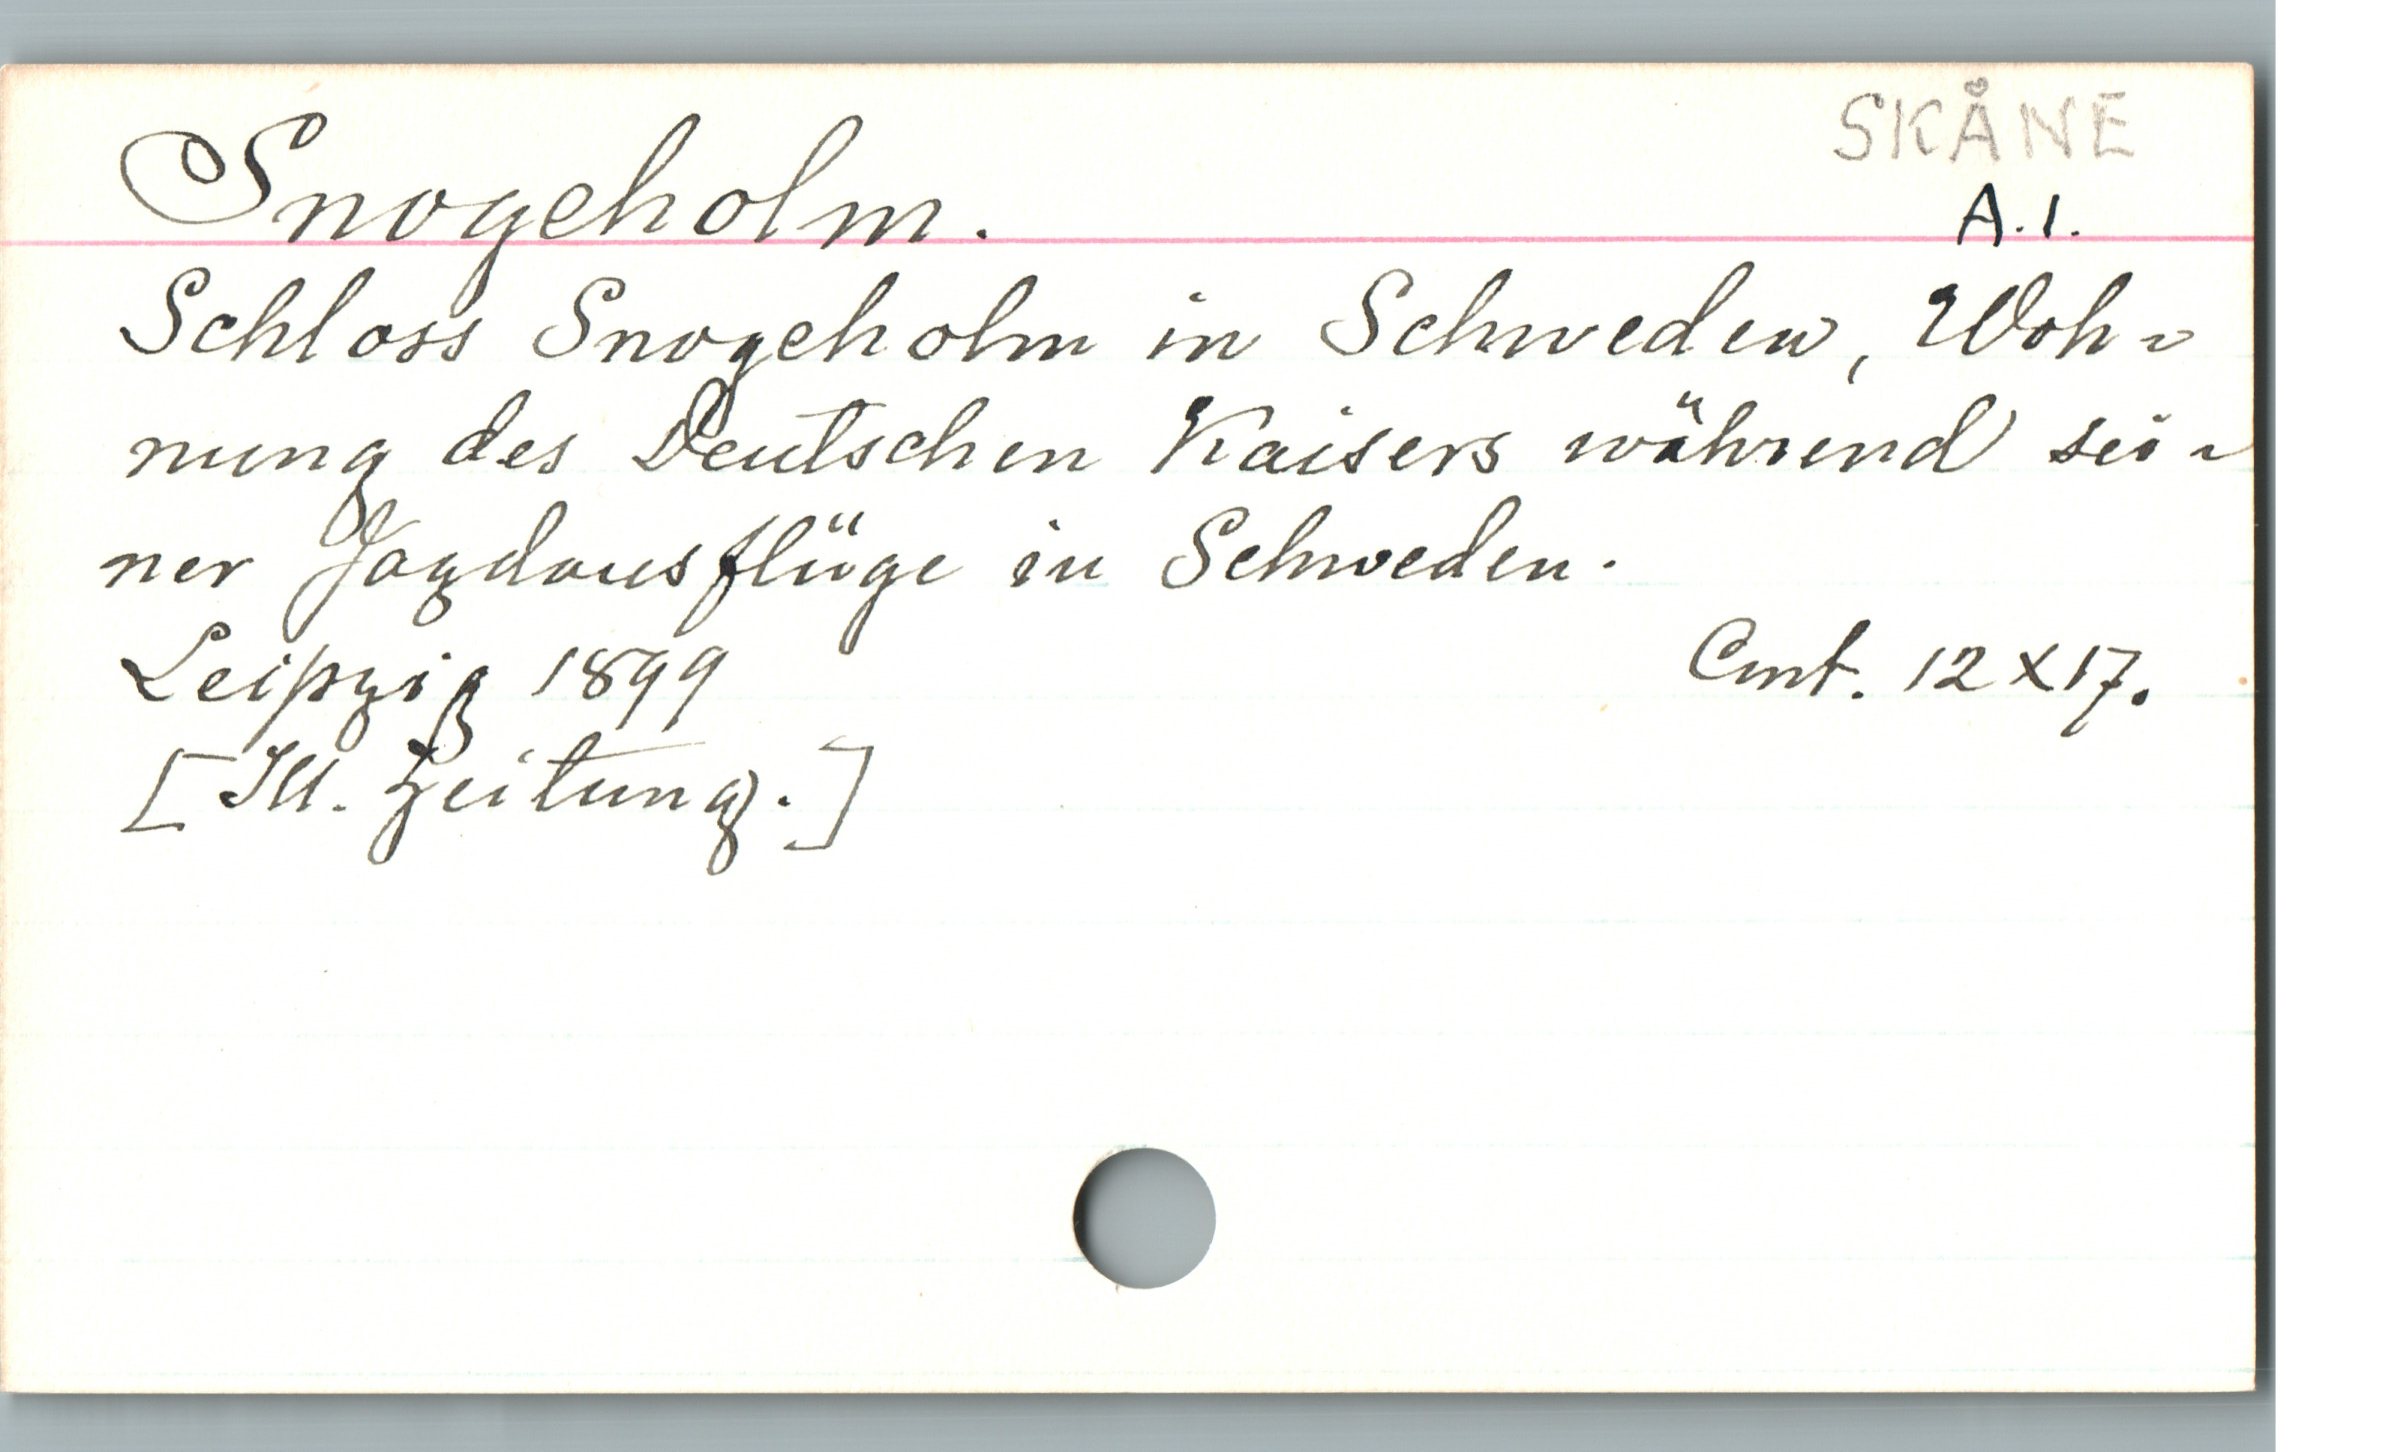 SKÅNE
Snogeholm.
A.1.
Schloss Snogeholm in Schweden, Woh-
nung des Deutschen Kaisers während sei-
ner Jagdausflüge in Schweden.
Leipzig 1899
Cmt. 12 x 17.
[Ill. Zeitung.]